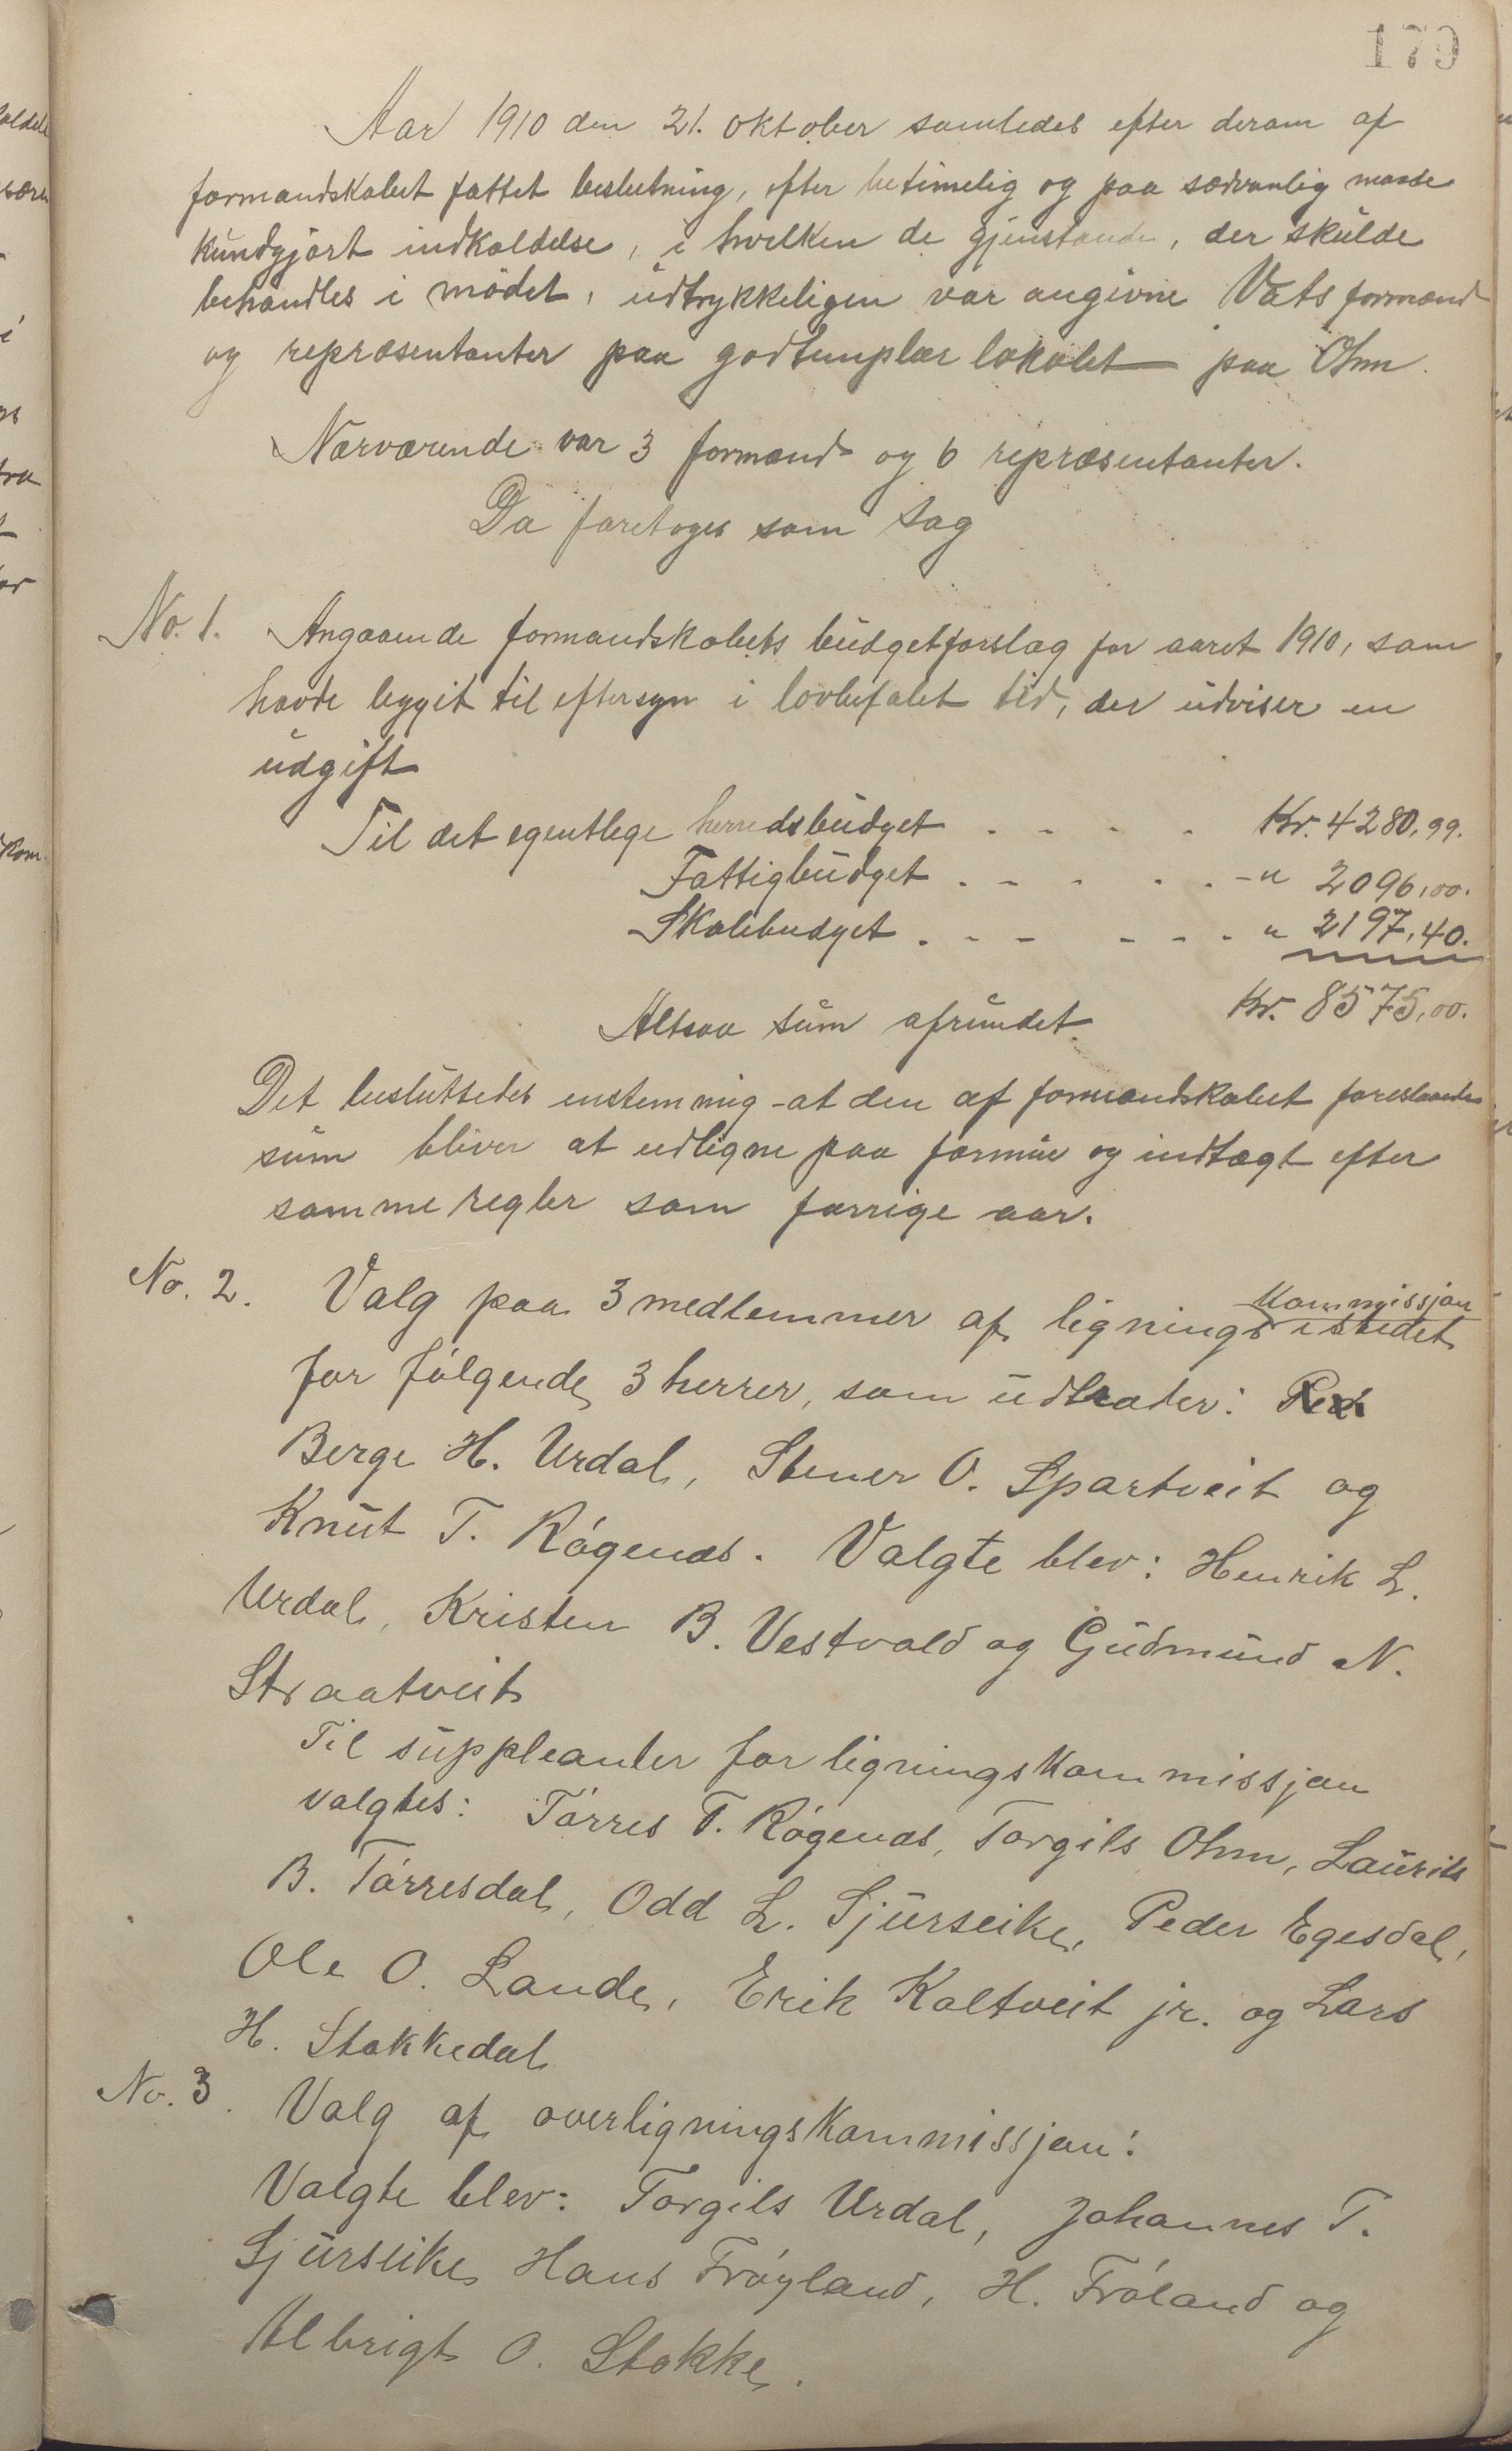 179
Aar 1910 den 21. oktober samledes efter derom af
formandskabet fattet beslutning, efter betimelig og paa sædvanlig maade
kundgjort indkaldelse, i hvilken de gjenstande, der skulde
behandles i mødet, udtrykkeligen var angivne Vats formænd
og repræsentanter paa godtemplarlokalet paa Ohm.
Nærværende var 3 formænd og 6 repræsentanter.
Da foretoges som sag
No. 1. Angaaende formandskabets budgetforslag for aaret 1910, som
havde legget til eftersyn i lovbefalet tid, der udviser en
udgift
Til det egentlege herredsbudget . - - . Kr. 4280,99.
Fattigbudget . - - . . - " 2096,00.
Skolebudget . - - - - - . " 2197,40.
Altsaa sum afrundet. Kr. 8575,00.
Det besluttedes enstemmig - at den af formandskabet foreslaaede
sum bliver at udligne paa formue og indtægt efter
samme regler som forrige aar.
No. 2. Valg paa 3 medlemmer af lignings kommissjon istedet
for følgende 3 herrer, som udtræder:
Berge H. Urdal, Stener O. Spartveit og
Knut T. Røgenæs. Valgte blev: Henrik L.
Urdal, Kristen B. Vestvold og Gudmund N.
Straatveit
Til suppleanter for ligningskommissjon
valgtes: Tørres T. Røgenæs, Torgils Ohm, Laurits
B. Tørresdal, Odd L. Sjurseike, Peder Egesdal,
Ole O. Lande, Erik Kaltveit jr. og Lars
H. Stokkedal
No. 3. Valg af overligningskommissjon:
Valgte blev: Torgils Urdal, Johannes T.
Sjurseike Hans Frøyland, H. Frøland og
Albrigt O. Stokke.